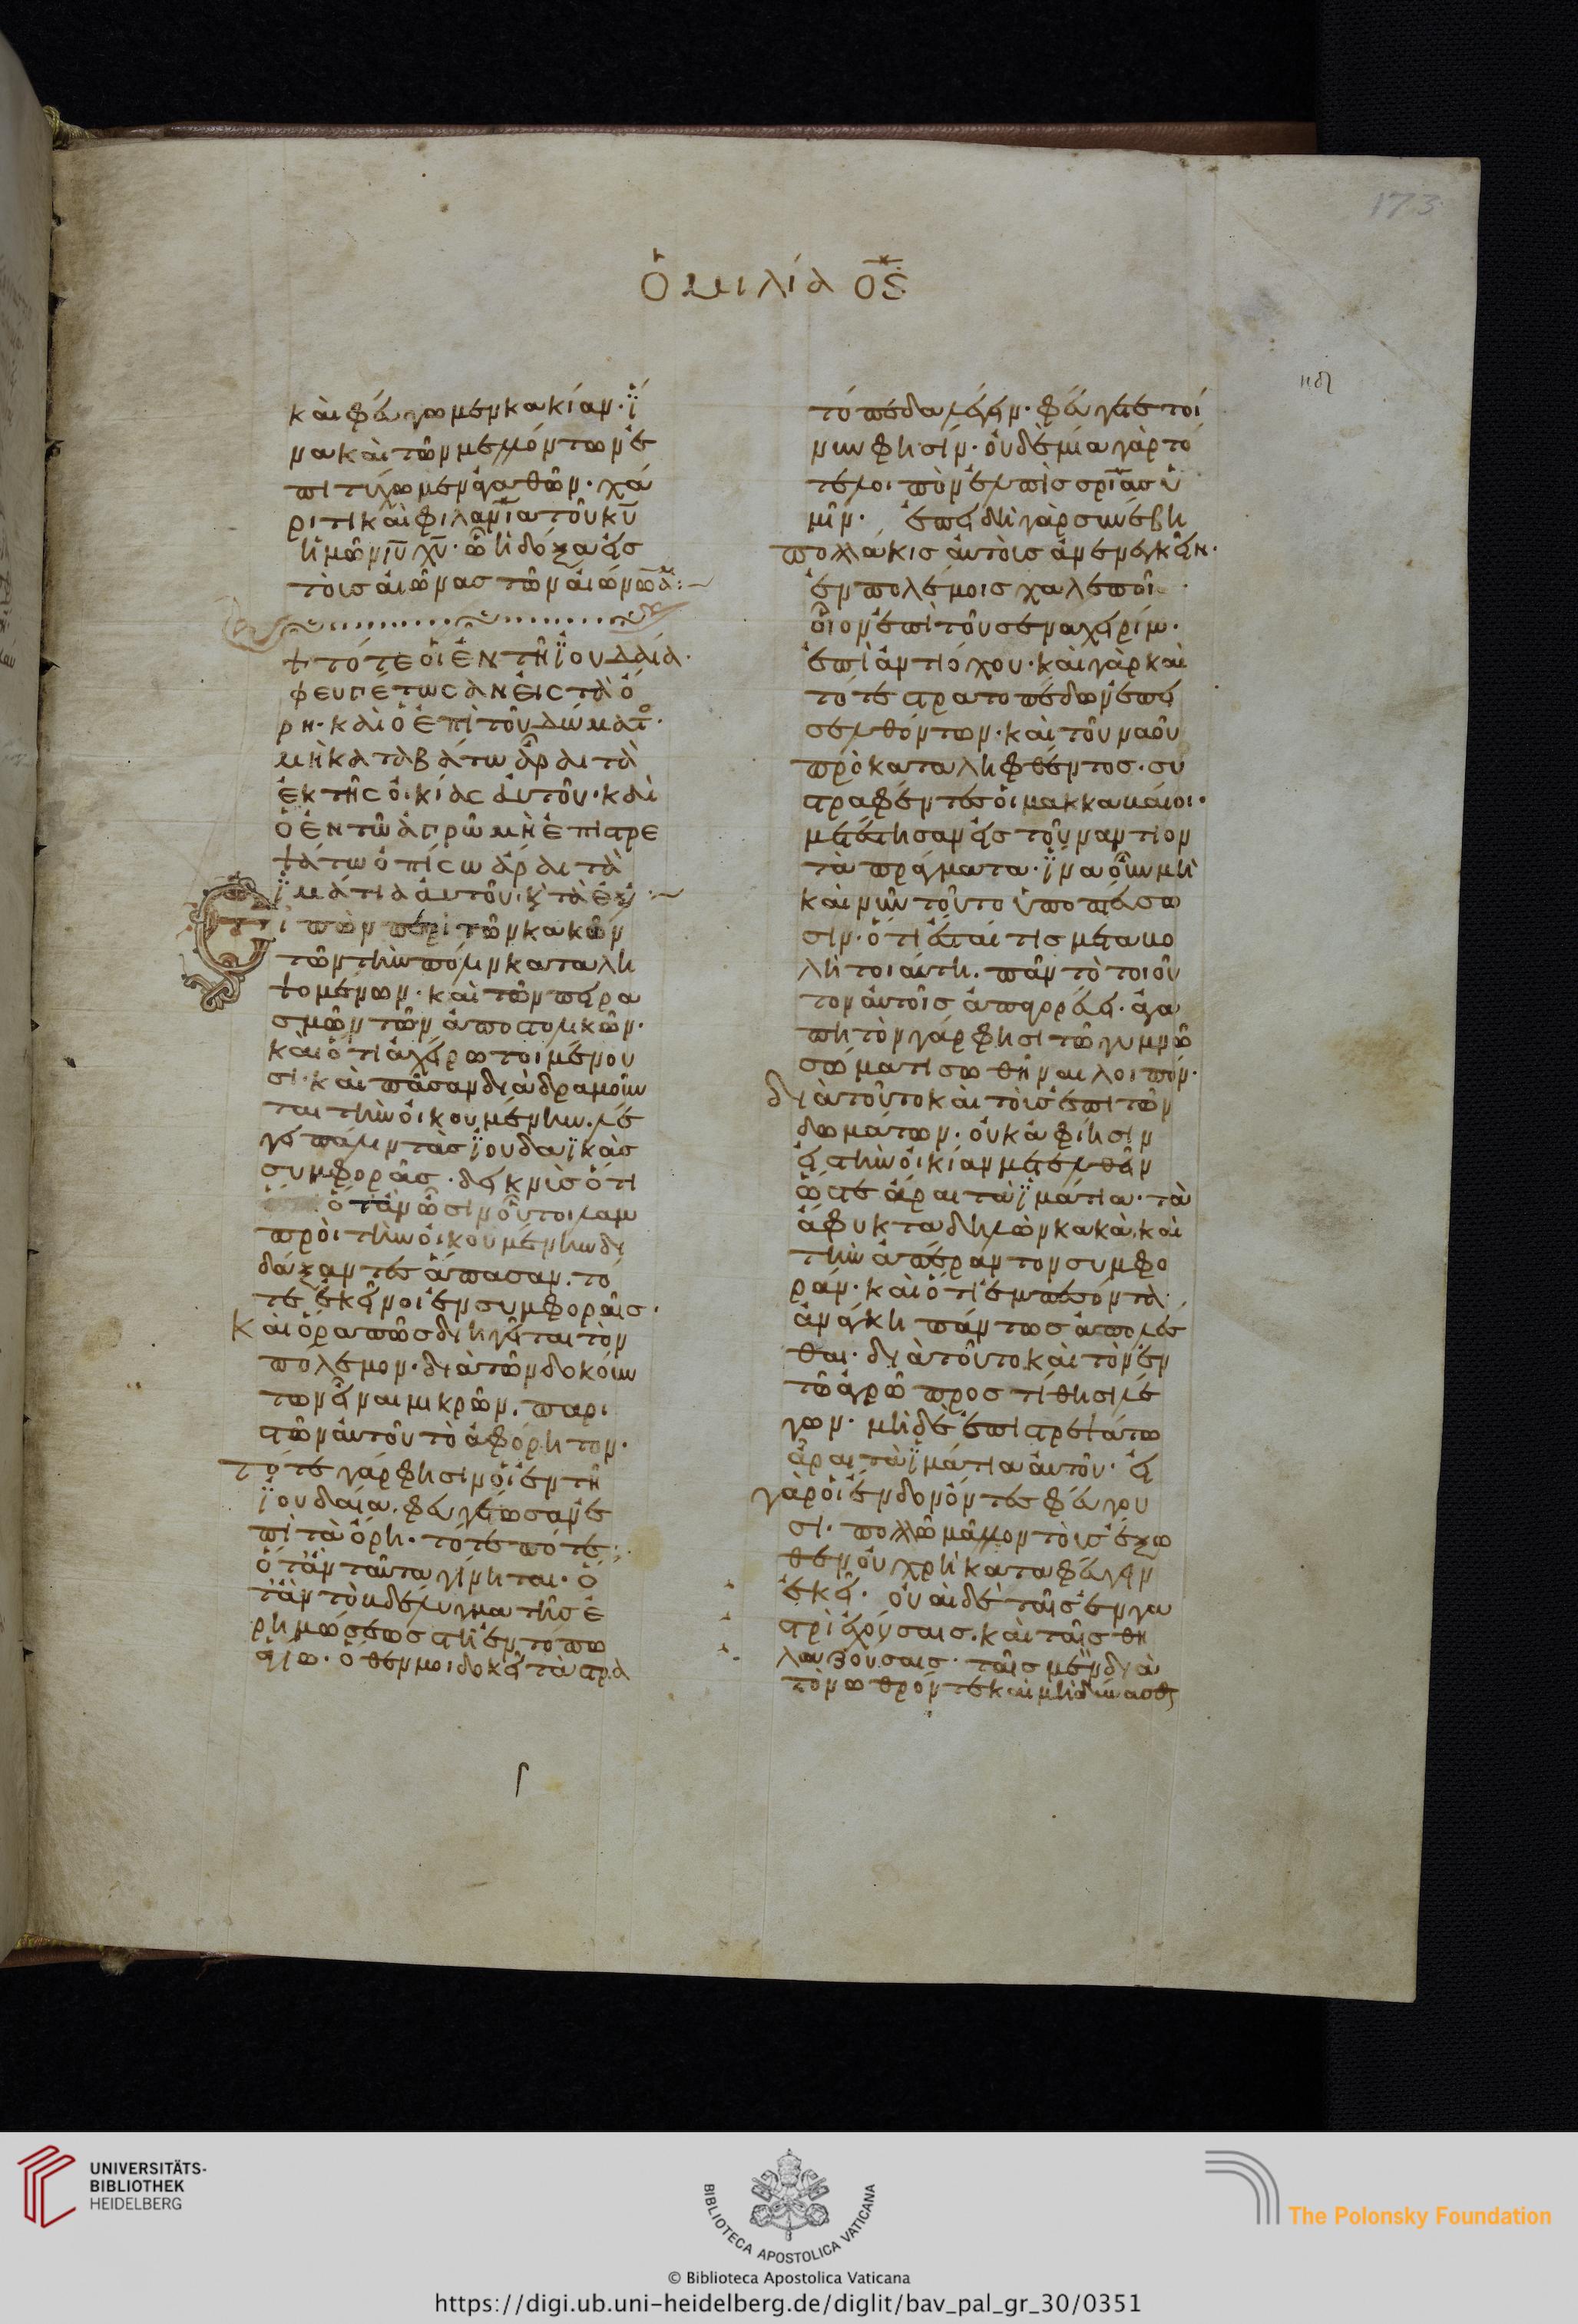 173
ὁμιλία ος
ηδ
καὶ φύγωμεν κακίαν· ἵ
να καὶ τῶν μελλόντων ἐ
πιτύχωμεν ἀγαθῶν· χά
ριτι καὶ φιλανΐα τοῦ κῦ
ἡμῶν ιῦ χῦ· ὧ ἡ δόξα εἰς
τοὺς αἰῶνας τῶν αἰώνων
ϯ τότε οἱ ἐν τῆ ϊουδαία·
φευγέτωσαν εἰς τὰ ὄ
ρη· καὶ ὁ ἐπὶ τοῦ δώματο·
μὴ καταβάτω ἆραι τὰ
ἐκ τῆς οἰκίας αὐτοῦ· καὶ
ὁ ἐν τῶ ἀγρῶ μὴ ἐπιστρε
ψάτω ὀπίσω ἆραι τὰ
ἱμάτια αὐτοῦ· κ τὰ ἑξ
Εἰπὼν περὶ τῶν κακῶν
τῶν τὴν πόλιν καταλη
ψομένων· καὶ τῶν πειρα
σμῶν τῶν ἀποστολικῶν·
καὶ ὅτι ἀχείρωτοι μένου
σι· καὶ πᾶσαν διαδραμοῦν
ται τὴν οἰκουμένην· λέ
γει πάλιν τὰς ϊουδαϊκὰς
συμφοράς· δεικνὺς ὅτι
ὅταν ὦσιν οὗτοι λαμ
προὶ τὴν οἰκουμένην δι
δάξαντες ἅπασαν· τό
τε ἐκεῖνοι ἐν συμφοραῖς·
Καὶ ὅρα πῶς διηγεῖται τὸν
πόλεμον· διὰ τῶν δοκούν
των εἶναι μικρῶν· παρι
στῶν αὐτοῦ τὸ ἀφόρητον·
Τότε γάρ φησιν οἱ ἐν τῆ
ϊουδαία· φευγέτωσαν ἐ
πὶ τὰ ὄρη· τότε πότε·
ὅταν ταῦτα γίνηται· ὅ
ταν τὸ βδέλυγμα τῆς ἐ
ρημώσεως στῆ ἐν τόπω
ἁγίω· ὅθεν μοι δοκεῖ τὰ στρα
τόπεδα λέγειν· φεύγετε τοί
νυν φησίν· οὐδεμία γὰρ τὸ
τε λοιπὸν ἐλπὶς σρΐας ὑ
μῖν· ἐπειδὴ γὰρ συνέβη
πολλάκις αὐτοῖς ἀνενεγκεῖν·
ἐν πολέμοις χαλεποῖ
οἷον ἐπὶ τοῦ σεναχειρίμ·
ἐπὶ ἀντιόχου· καὶ γὰρ καὶ
τότε στρατοπέδων ἐπει
σελθόντων· καὶ τοῦ ναοῦ
προκαταληφθέντος· συ
στραφέντες οἱ μακκαβαῖοι·
μετέστησαν εἰς τοὐναντίον
τὰ πράγματα· ἵνα οὖν μὴ
καὶ νῦν τοῦτο ὑποπτεύσω
σιν· ὅτι ἔσται τις μεταβο
λὴ τοιαύτη· πᾶν τὸ τοιοῦ
τον αὐτοῖς ἀπαγορεύει· ἀγα
πητὸν γάρ φησι τῶ γυμνῶ
σώματι σωθῆναι λοιπόν·
διὰ τοῦτο καὶ τοὺς ἐπὶ τῶν
δωμάτων· οὐκ ἀφίησιν
εἰς τὴν οἰκίαν μετελθεῖν
ὥστε ἆραι τὰ ἱμάτια· τὰ
ἄφυκτα δηλῶν κακὰ· καὶ
τὴν ἀπέραντον συμφο
ράν· καὶ ὅτι ἐμπεσόντα
ἀνάγκη πάντως ἀπολέσ
θαι· διὰ τοῦτο καὶ τὸν ἐν
τῶ ἀγρῶ προστίθησι λέ
γων· μηδὲ ἐπιστρεψάτω
ἆραι τὰ ἱμάτια αὐτοῦ· εἰ
γὰρ οἱ ἔνδον ὄντες φεύγου
σι· πολλῶ μᾶλλον τοὺς ἔξω
θεν οὐ χρὴ καταφεύγειν
ἐκεῖ· οὐαὶ δὲ ταῖς ἐν γα
στρὶ ἐχούσαις· καὶ ταῖς θη
λαζούσαις· ταῖς μὲν διὰ
τὸ νωθρόν τε καὶ μὴ δύνασθ
UNIVERSITÄTS-
BIBLIOTHEK
HEIDELBERG
BIBLIOTECA APOSTOLICA VATICANA
The Polonsky Foundation
© Biblioteca Apostolica Vaticana
https://digi.ub.uni-heidelberg.de/diglit/bav_pal_gr_30/0351